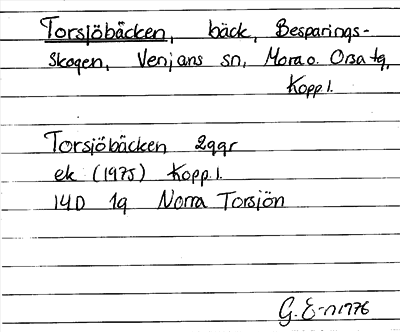 Torsjöbäcken, bäck, Besparings-
skogen, Venjans sn, Mora o. Orsa tg,
Kopp.l.
Torsjöbäcken 2ggr
ek (1975) Kopp.l.
14D 1g Norra Torsjön
G. E-n 1976